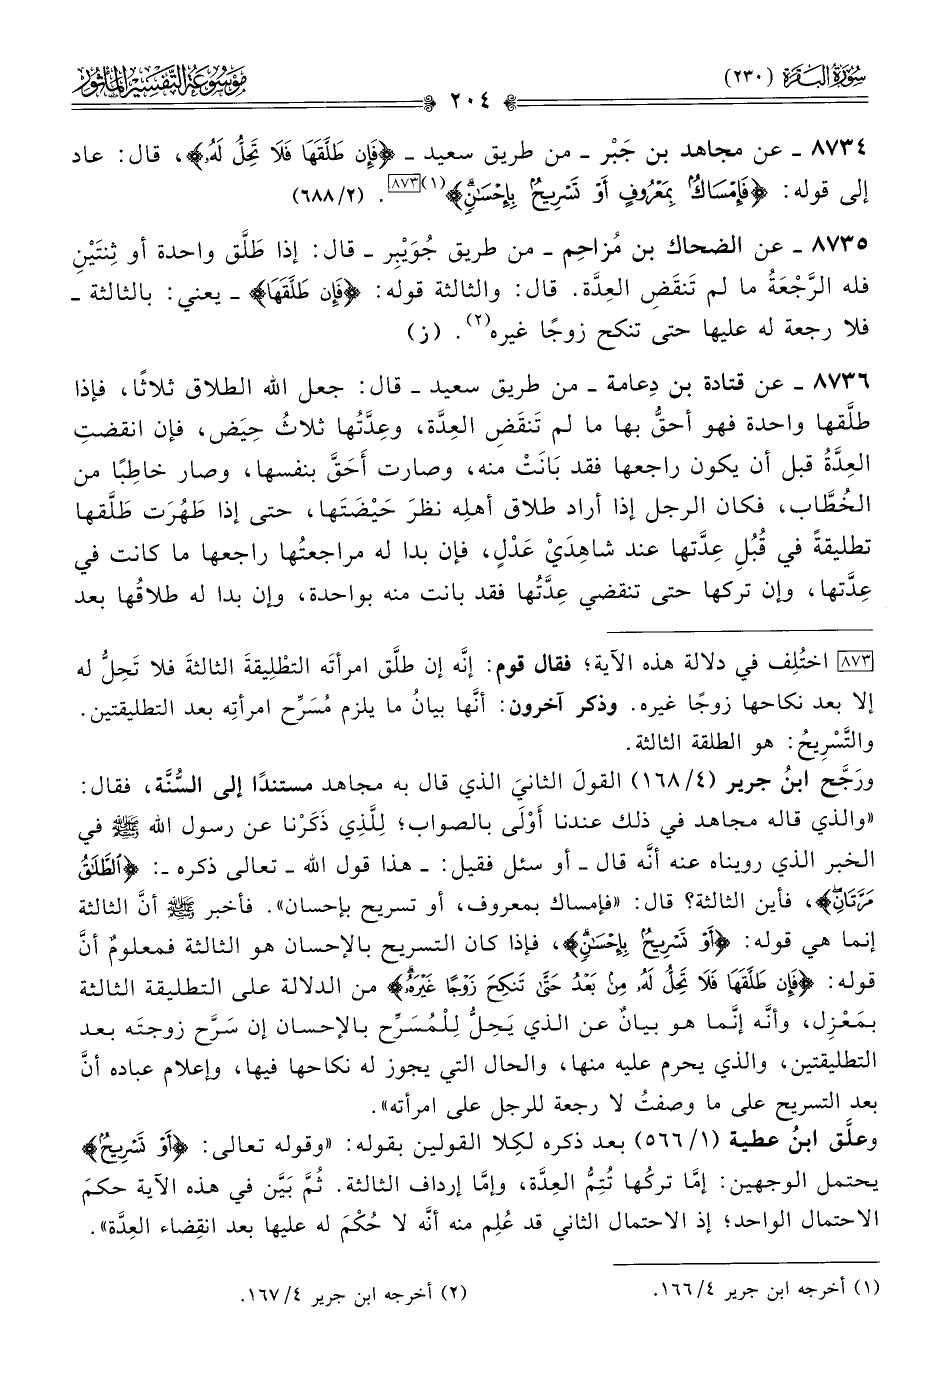 سُورَةُ البَقَرَةِ (٢٣٠)
مَوْسُوعَةُ التَّفْسِيرِ المَأْثُورِ
٢٠٤
٨٧٣٤ ـ عن مجاهد بن جَبْر ـ من طريق سعيد ـ ﴿فَإِن طَلَّقَهَا فَلَا تَحِلُّ لَهُۥ﴾، قال: عاد
إلى قوله: ﴿فَإِمْسَاكٌۢ بِمَعْرُوفٍ أَوْ تَسْرِيحٌۢ بِإِحْسَـٰنٍۗ﴾(١)[٨٧٣]. (٢/ ٦٨٨)
٨٧٣٥ ـ عن الضحاك بن مُزاحِم ـ من طريق جُوَيْبِر ـ قال: إذا طَلَّق واحدة أو ثِنتَيْنِ
فله الرَّجْعَةُ ما لم تَنقَضِ العِدَّة. قال: والثالثة قوله: ﴿فَإِن طَلَّقَهَا﴾ ـ يعني: بالثالثة ـ
فلا رجعة له عليها حتى تنكح زوجًا غيره(٢). (ز)
٨٧٣٦ ـ عن قتادة بن دِعامة ـ من طريق سعيد ـ قال: جعل الله الطلاق ثلاثًا، فإذا
طلَّقها واحدة فهو أحقُّ بها ما لم تَنقَضِ العِدَّة، وعِدَّتُها ثلاثُ حِيَض، فإن انقضت
العِدَّةُ قبل أن يكون راجعها فقد بَانَتْ منه، وصارت أَحَقَّ بنفسها، وصار خاطِبًا من
الخُطَّاب، فكان الرجل إذا أراد طلاق أهلِه نظرَ حَيْضَتَها، حتى إذا طَهُرَت طَلَّقها
تطليقةً في قُبُلِ عِدَّتها عند شاهِدَيْ عَدْلٍ، فإن بدا له مراجعتُها راجعها ما كانت في
عِدَّتها، وإن تركها حتى تنقضي عِدَّتُها فقد بانت منه بواحدة، وإن بدا له طلاقُها بعد
[٨٧٣] اختُلِف في دلالة هذه الآية؛ فقال قوم: إنَّه إن طلَّق امرأتَه التطْلِيقةَ الثالثةَ فلا تَحِلُّ له
إلا بعد نكاحها زوجًا غيره. وذكر آخرون: أنَّها بيانُ ما يلزم مُسَرِّح امرأتِه بعد التطليقتين.
والتَّسْرِيحُ: هو الطلقة الثالثة.
ورَجَّح ابنُ جرير (٤/ ١٦٨) القولَ الثانيَ الذي قال به مجاهد مستندًا إلى السُّنَّة، فقال:
«والذي قاله مجاهد في ذلك عندنا أَوْلَى بالصواب؛ لِلَّذِي ذَكَرْنا عن رسول الله ﷺ في
الخبر الذي رويناه عنه أنَّه قال ـ أو سئل فقيل: ـ هذا قول الله ـ تعالى ذكره ـ: ﴿ٱلطَّلَـٰقُ
مَرَّتَانِۖ﴾، فأين الثالثة؟ قال: «فإمساك بمعروف، أو تسريح بإحسان». فأخبر ﷺ أنَّ الثالثة
إنما هي قوله: ﴿أَوْ تَسْرِيحٌۢ بِإِحْسَـٰنٍۗ﴾، فإذا كان التسريح بالإحسان هو الثالثة فمعلومٌ أنَّ
قوله: ﴿فَإِن طَلَّقَهَا فَلَا تَحِلُّ لَهُۥ مِنۢ بَعْدُ حَتَّىٰ تَنكِحَ زَوْجًا غَيْرَهُۥۗ﴾ من الدلالة على التطليقة الثالثة
بمَعْزِل، وأنَّه إنَّما هو بيانٌ عن الذي يَحِلُّ لِلْمُسَرِّح بالإحسان إن سَرَّح زوجتَه بعد
التطليقتين، والذي يحرم عليه منها، والحال التي يجوز له نكاحها فيها، وإعلام عباده أنَّ
بعد التسريح على ما وصفتُ لا رجعة للرجل على امرأته».
وعلَّق ابنُ عطية (١/ ٥٦٦) بعد ذكره لكِلا القولين بقوله: «وقوله تعالى: ﴿أَوْ تَسْرِيحٌۢ﴾
يحتمل الوجهين: إمَّا تركُها تُتِمُّ العِدَّة، وإمَّا إرداف الثالثة. ثُمَّ بَيَّن في هذه الآية حكمَ
الاحتمال الواحد؛ إذ الاحتمال الثاني قد عُلِم منه أنَّه لا حُكْمَ له عليها بعد انقِضاء العِدَّة».
(١) أخرجه ابن جرير ٤/ ١٦٦.
(٢) أخرجه ابن جرير ٤/ ١٦٧.